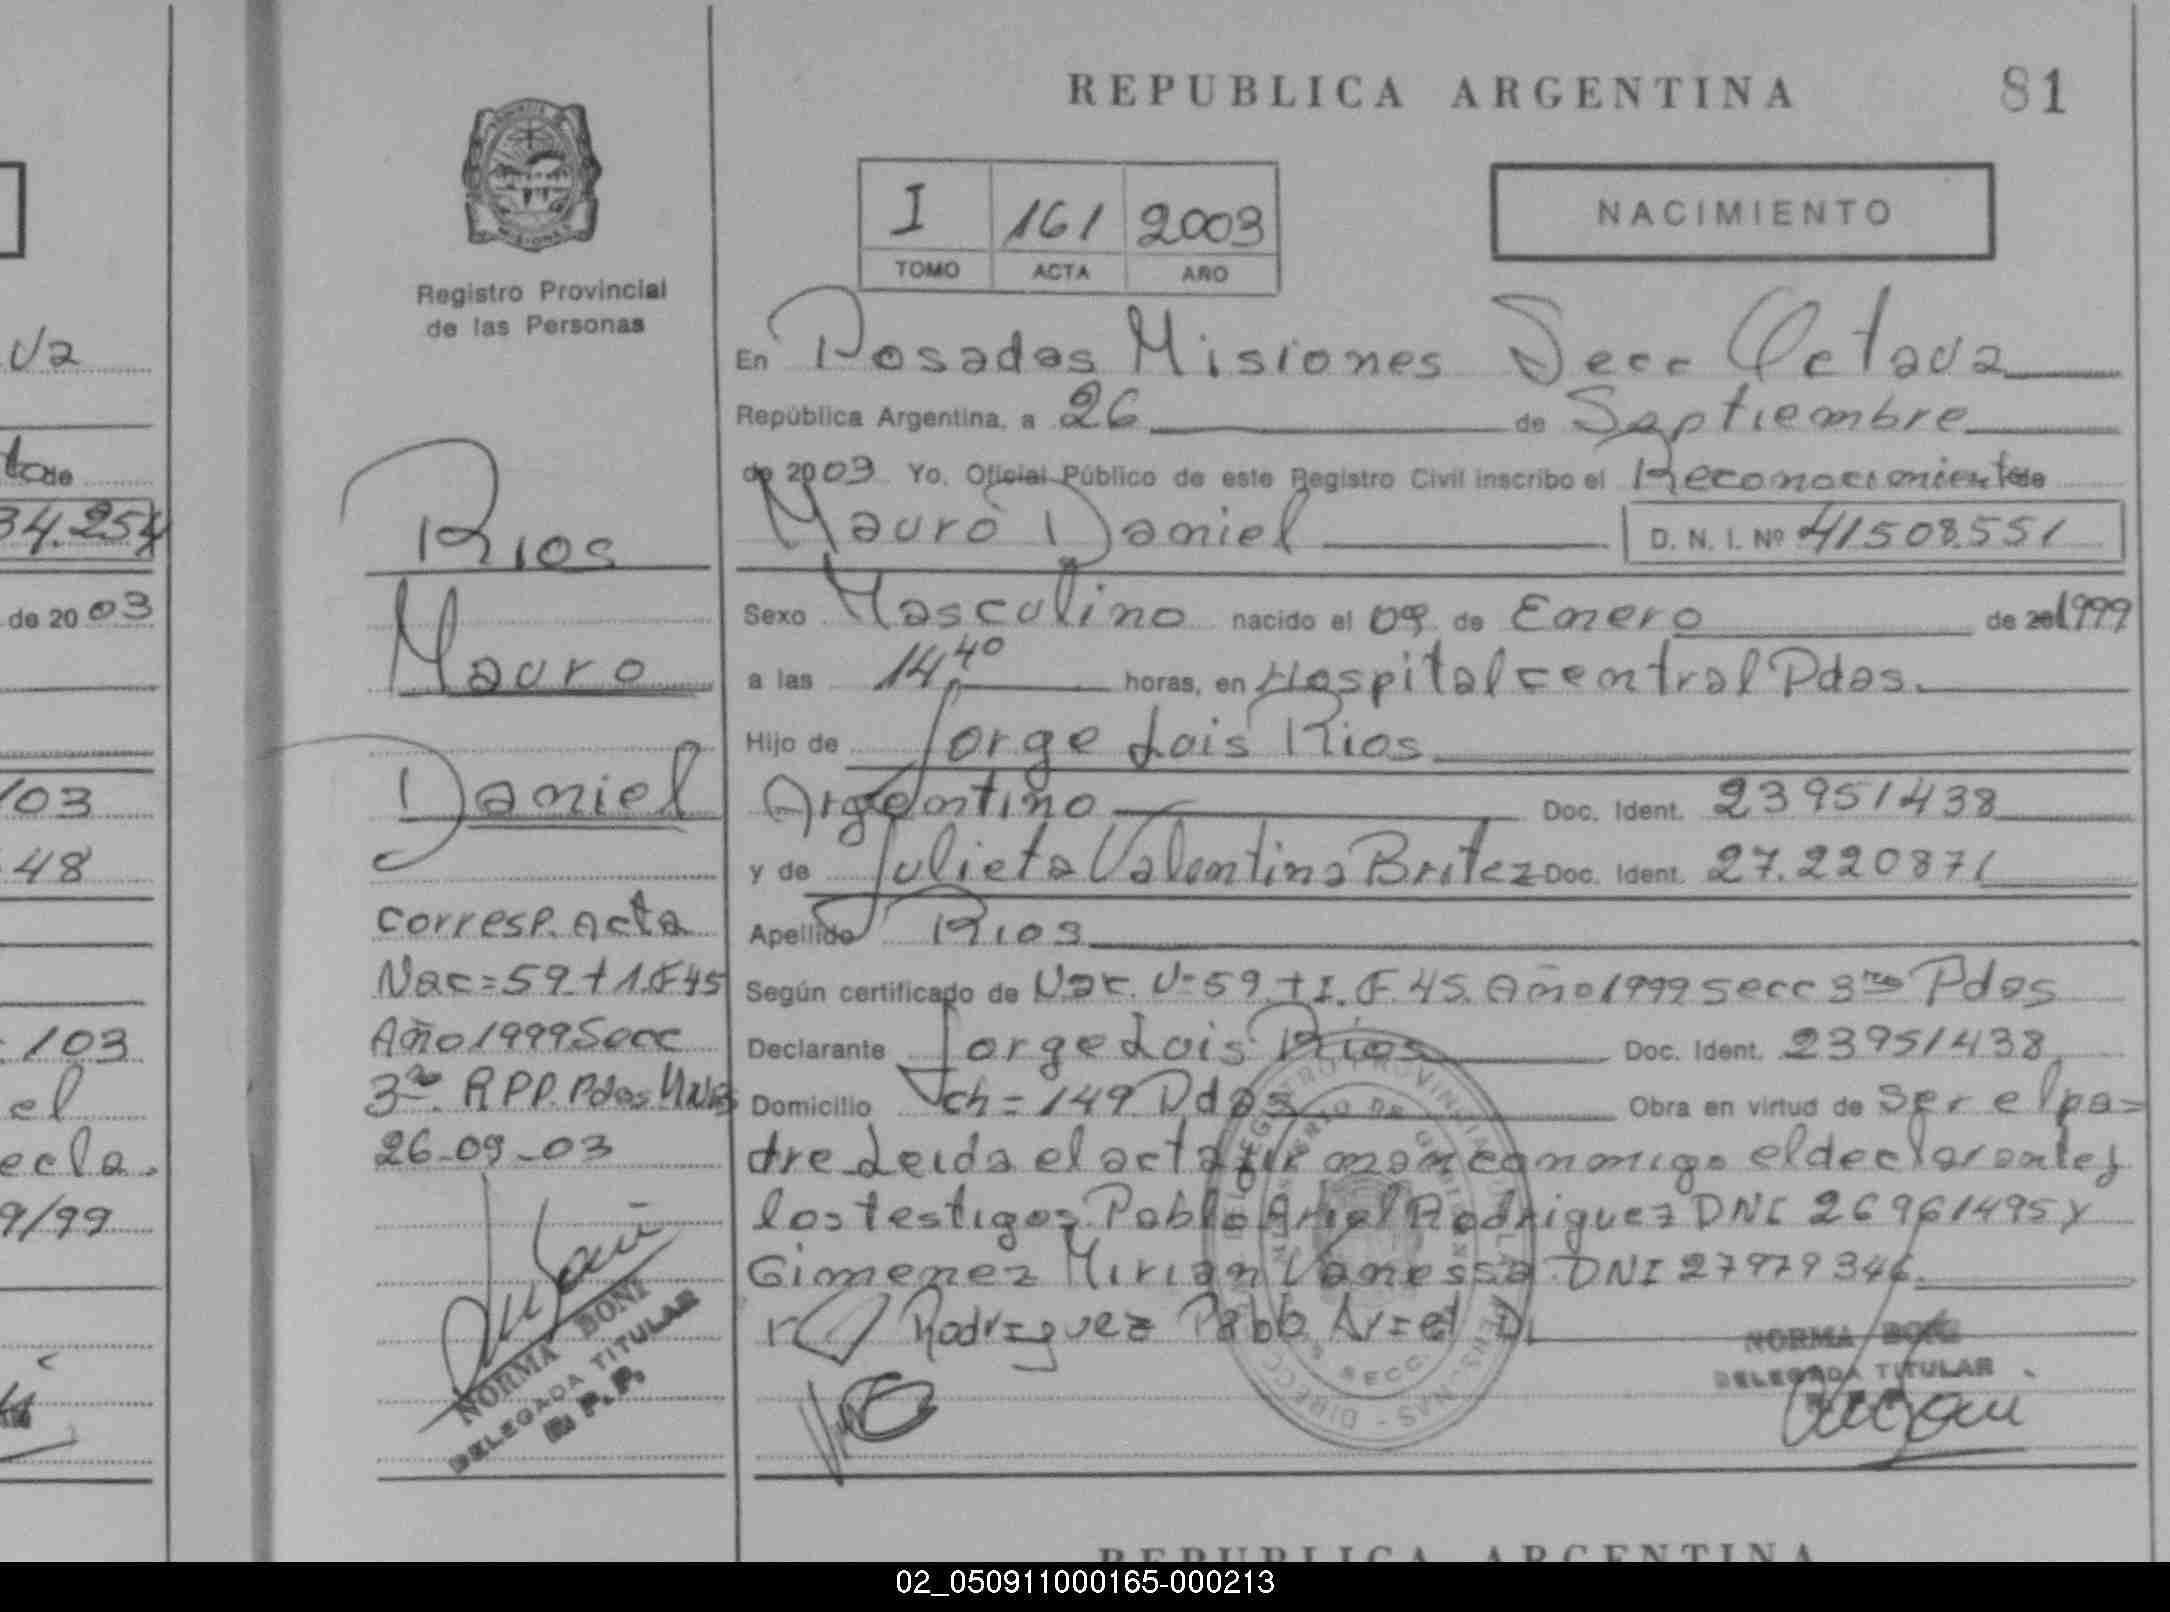 REPUBLICA ARGENTINA 81
I 161 2003
TOMO ACTA AÑO
NACIMIENTO
Registro Provincial
de las Personas
En Posadas Misiones Secc Octava
República Argentina, a 26 de Septiembre
de 2003 Yo, Oficial Público de este Registro Civil inscribo el Reconocimiento de
Mauro Daniel D. N. I. Nº 41508551
Sexo Masculino nacido el 09 de Enero de 1999
a las 14,40 horas, en Hospital central Pdas.
Hijo de Jorge Luis Rios
Argentino Doc. Ident. 23951438
y de Julieta Valentina Britez Doc. Ident. 27.220871
Apellido Rios
Según certificado de Nac. Nº 59. tI. F. 45. Año 1999 secc 3ra Pdas
Declarante Jorge Luis Rios Doc. Ident. 23951438
Domicilio ch = 149 Pdas Obra en virtud de ser el pa=
dre Leida el acta firman conmigo el declarante y
los testigos. Pablo Ariel Rodriguez DNI 26961495 y
Gimenez Mirian Vanessa DNI 27979346
Rodriguez Pablo Ariel D.
NORMA BONI
DELEGADA TITULAR
Rios
Mauro
Daniel
corresp. acta
Nac = 59 t 1. F 45
Año 1999 Secc
3ra RPP. Pdas Mnes
26-09-03
NORMA BONI
DELEGADA TITULAR
R. P. P.
va
to de
34.254
de 2003
103
48
103
el
ecla.
9/99
REPUBLICA ARGENTINA
02_050911000165-000213